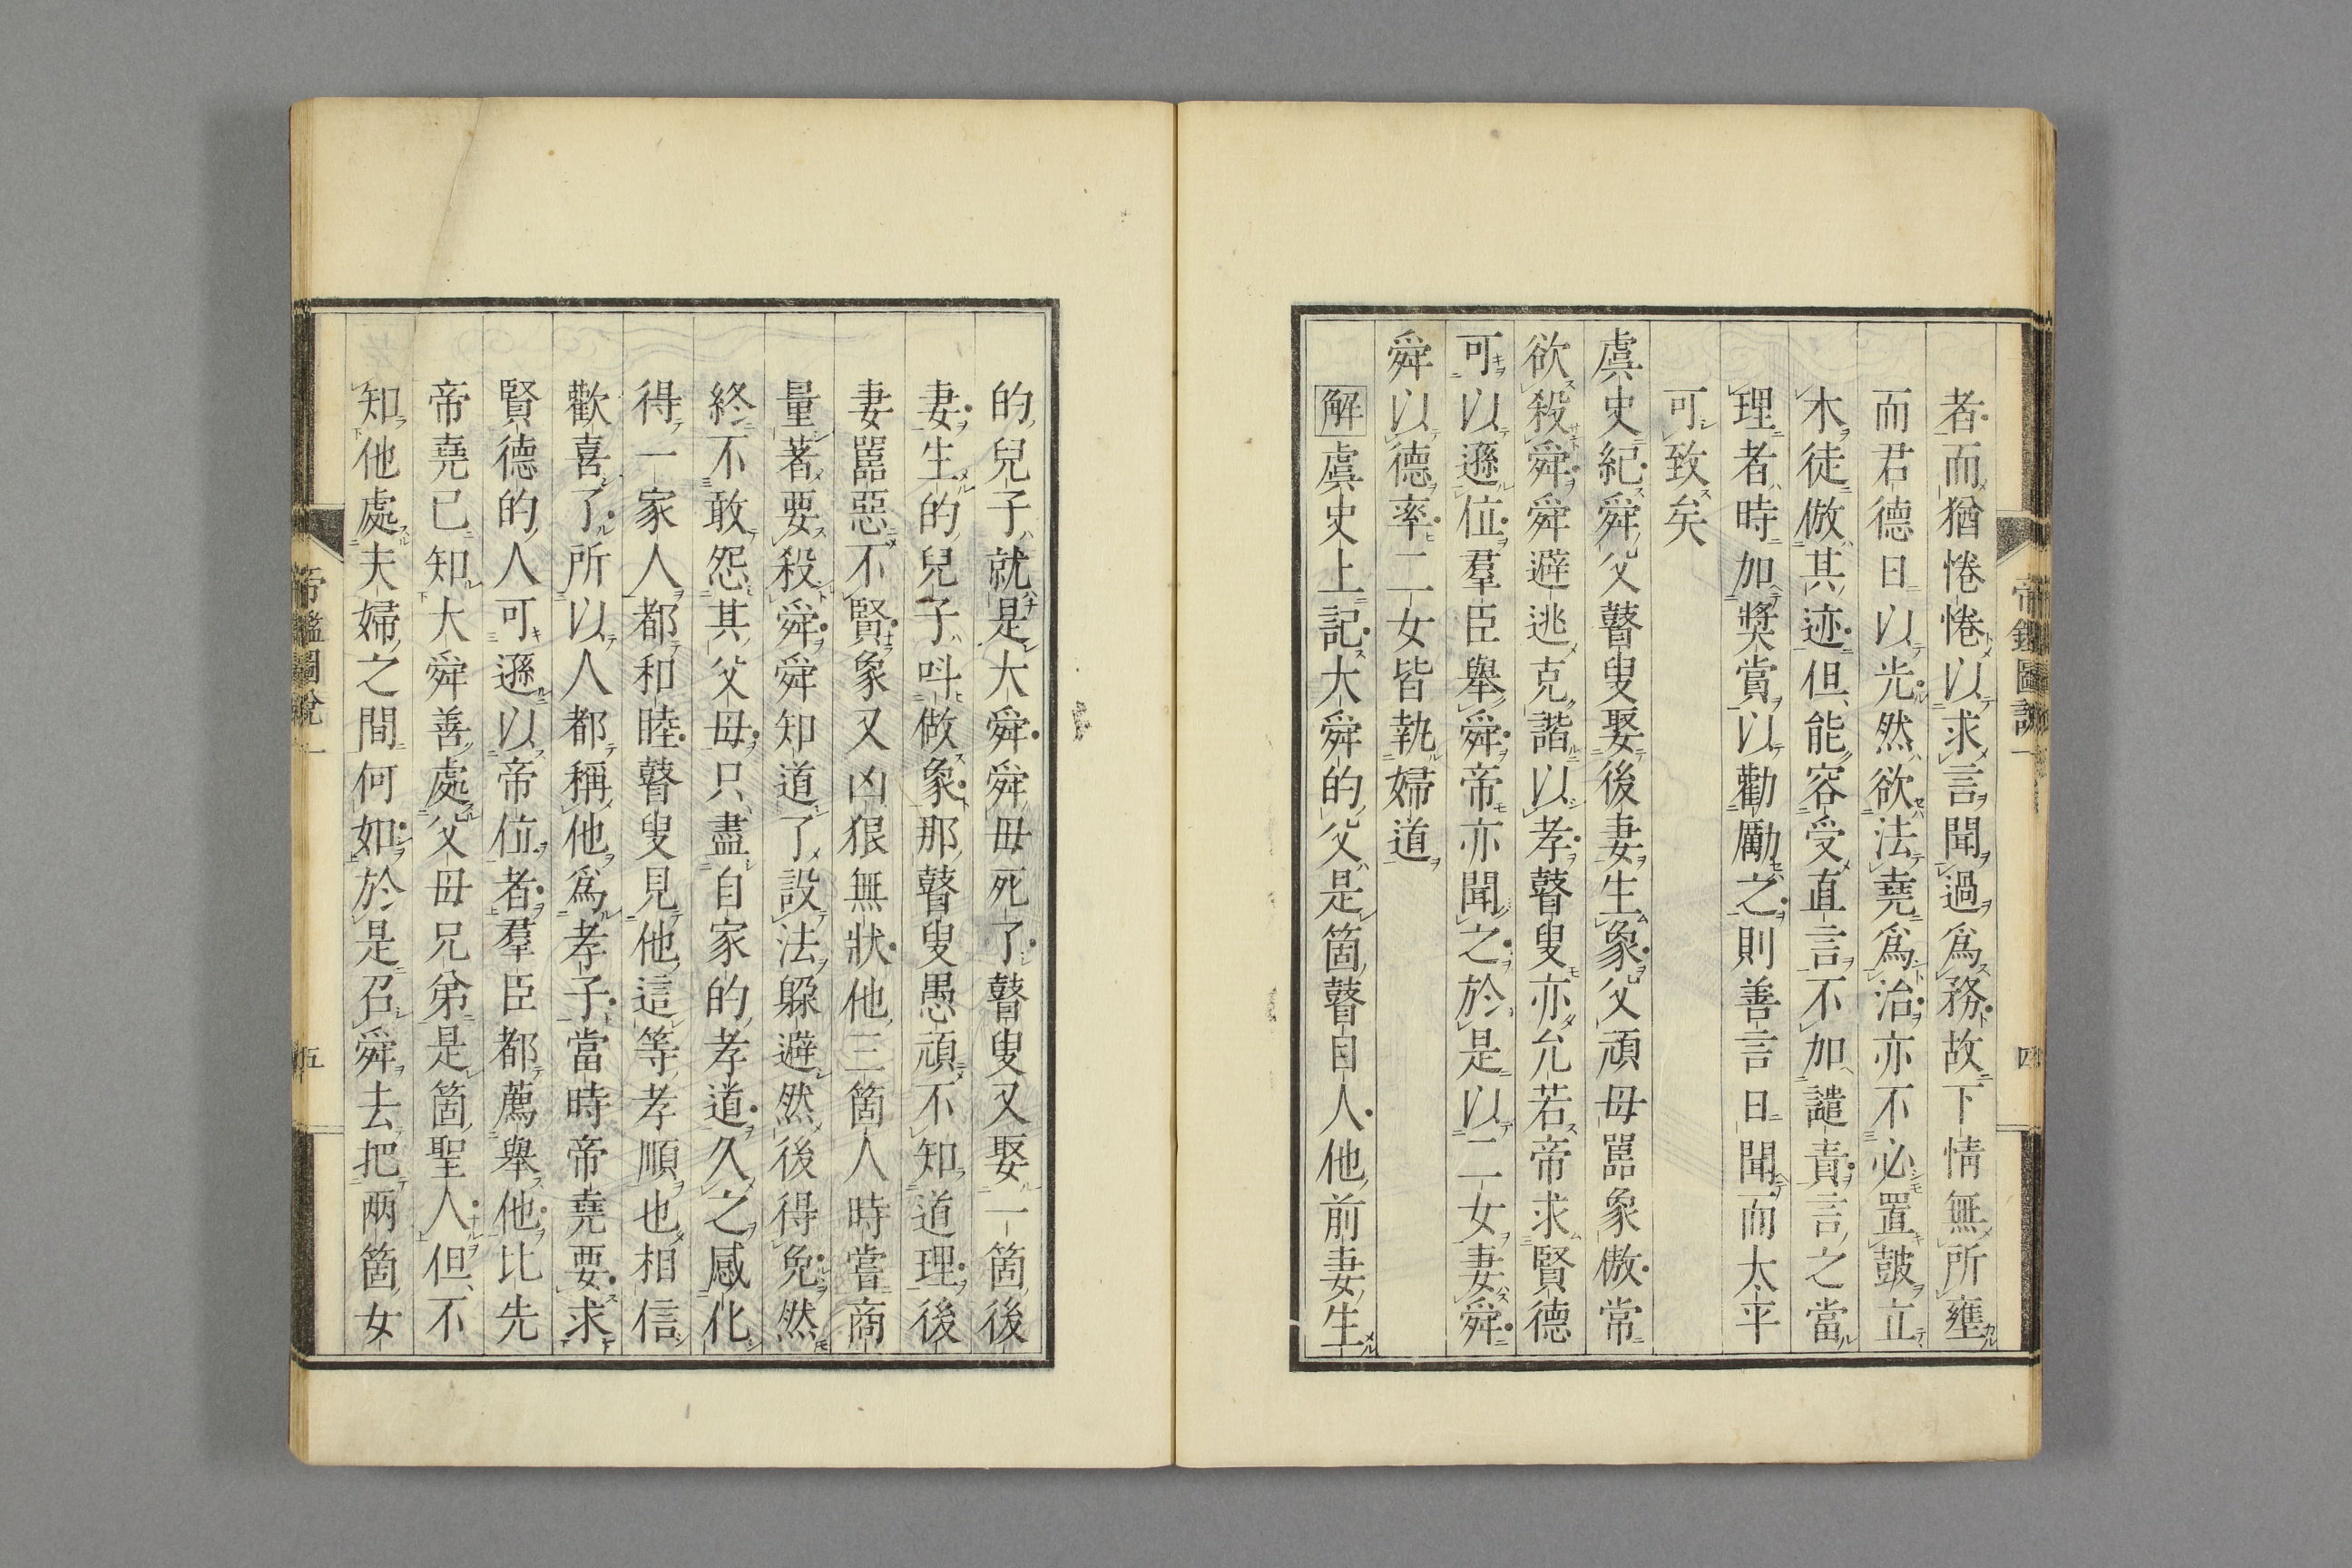 者而猶惓惓以求言聞過爲務故下情無所壅
而君德日以光然欲法堯爲治亦不必置鼓立
木徒倣其迹但能容受直言不加譴責言之當
理者時加奬賞以勸勵之則善言日聞而太平
可致矣
虞史紀舜父瞽叟娶後妻生象父頑母嚚象傲常
欲殺舜舜避逃克諧以孝瞽叟亦允若帝求賢德
可以遜位羣臣舉舜帝亦聞之於是以二女妻舜
舜以德率二女皆執婦道
解虞史上記大舜的父是箇瞽目人他前妻生
帝鑑圖說一
四
的兒子就是大舜舜母死了瞽叟又娶一箇後
妻生的兒子呌做象那瞽叟愚頑不知道理後
妻嚚惡不賢象又凶狠無狀他三箇人時嘗商
量著要殺舜舜知道了設法躱避然後得免然
終不敢怨其父母只盡自家的孝道久之感化
得一家人都和睦瞽叟見他這等孝順也相信
歡喜了所以人都稱他爲孝子當時帝堯要求
賢德的人可遜以帝位者羣臣都薦舉他比先
帝堯已知大舜善處父母兄弟是箇聖人但不
知他處夫婦之間何如於是召舜去把兩箇女
帝鑑圖說一
五